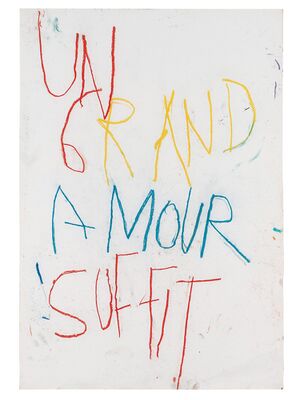 UN
GRAND
AMOUR
SUFFIT